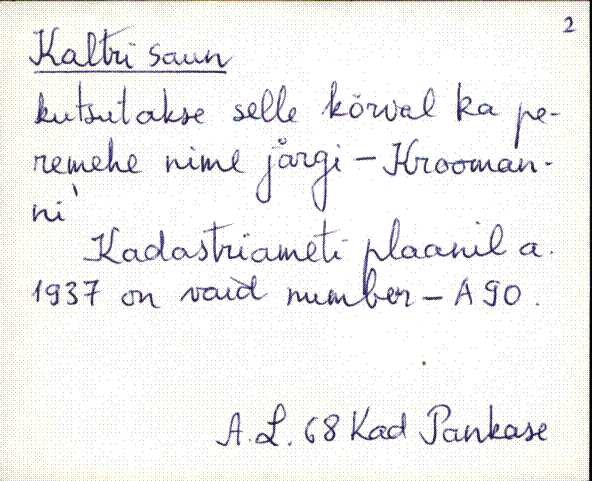 2
Kaltri saun
kutsutakse selle kõrval ka pe-
remehe nime järgi – Krooman-
ni'
Kadastriameti plaanil a.
1937 on vaid number – A 90.
A. L. 68 Kad Pankase